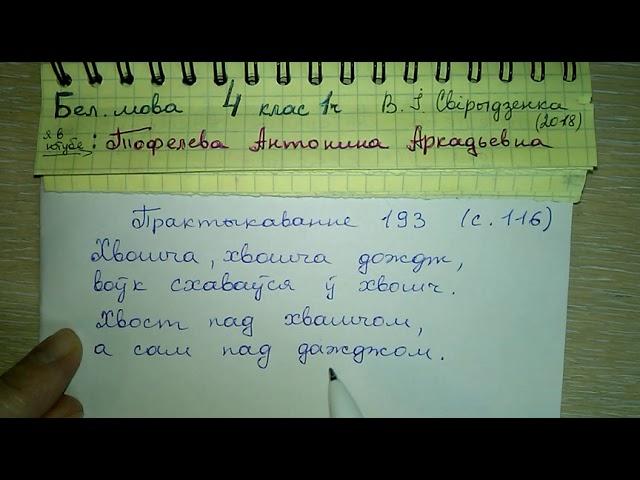 Бел. мова 4 клас 1ч В. І. Свірыдзенка
(2018)
я в
ютубе: Тофелева Антонина Аркадьевна
Практыкаванне 193 (с. 116)
Хвошча, хвошча дождж,
воўк схаваўся ў хвошч.
Хвост пад хвашчом,
а сам пад дажджом.